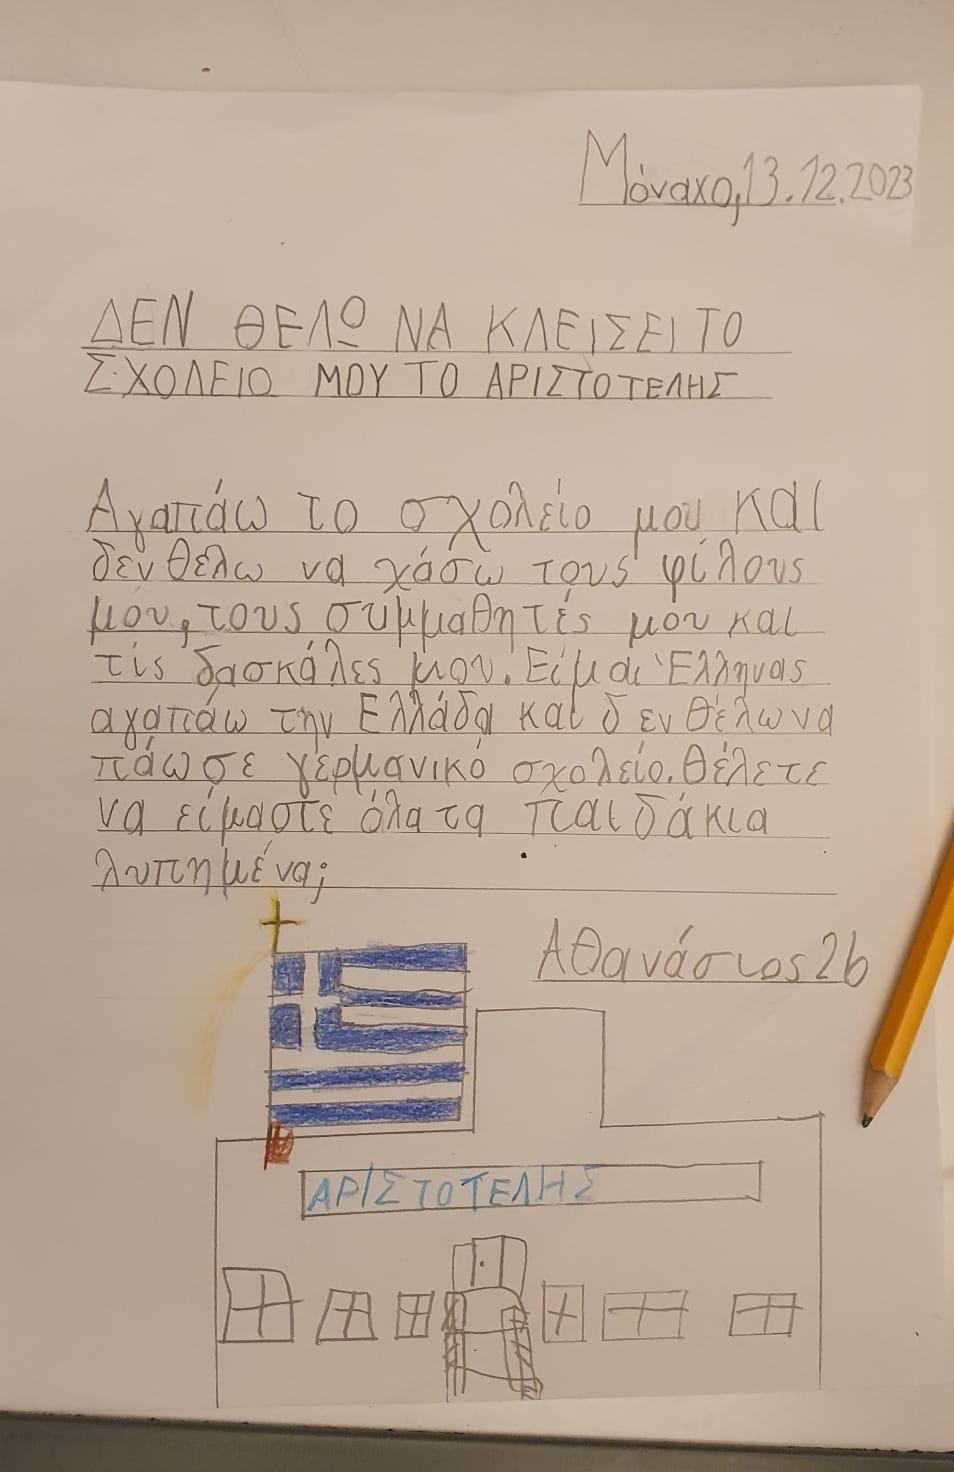 Μόναχο, 13.12.2023
ΔΕΝ ΘΕΛΩ ΝΑ ΚΛΕΙΣΕΙ ΤΟ
ΣΧΟΛΕΙΟ ΜΟΥ ΤΟ ΑΡΙΣΤΟΤΕΛΗΣ
Αγαπάω το σχολείο μου και
δεν θέλω να χάσω τους φίλους
μου, τους συμμαθητές μου και
τίς δασκάλες μου. Είμαι Έλληνας
αγαπάω την Ελλάδα και δεν θέλω να
πάω σε γερμανικό σχολείο. Θέλετε
να είμαστε όλα τα παιδάκια
λυπημένα;
Αθανάσιος 2b
ΑΡΙΣΤΟΤΕΛΗΣ